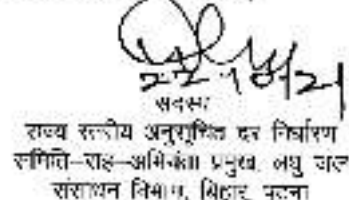 सदस्य
राज्य स्तरीय अनुसूचित दर निर्धारण
समिति-सह-अभियंता प्रमुख, लघु जल
संसाधन विभाग, बिहार, पटना